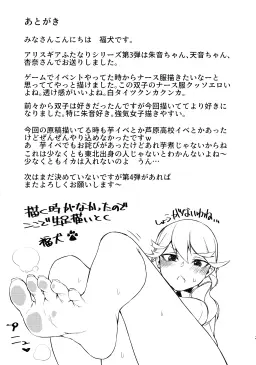 あとがき
みなさんこんにちは　福犬です。
アリスギアふたなりシリーズ第3弾は朱音ちゃん、天音ちゃん、
杏奈さんでお送りしました。
ゲームでイベントやってた時からナース服描きたいなーと
思っててやっと描けました。この双子のナース服クッソエロい
よね。透け感がいい。白タイツクンカクンカ。
前々から双子は好きだったんですが今回描いててより好きに
なりました。特に朱音好き。強気女子描きやすい。
今回の原稿描いてる時も芋イベとか芦原高校イベとかあった
けどぜんぜんやり込めなかったですｗ
あ　芋イベでもお詫びがあったけどあれ芋煮じゃないからね
これは少なくとも東北出身の人じゃないとわかんないよね〜
少なくともイカは入れないのよ　うん…
次はまだ決めていないですが第4弾があれば
またよろしくお願いします〜
描く時がなかったので
ここで生足描いとく
福犬
しょうがないわね…